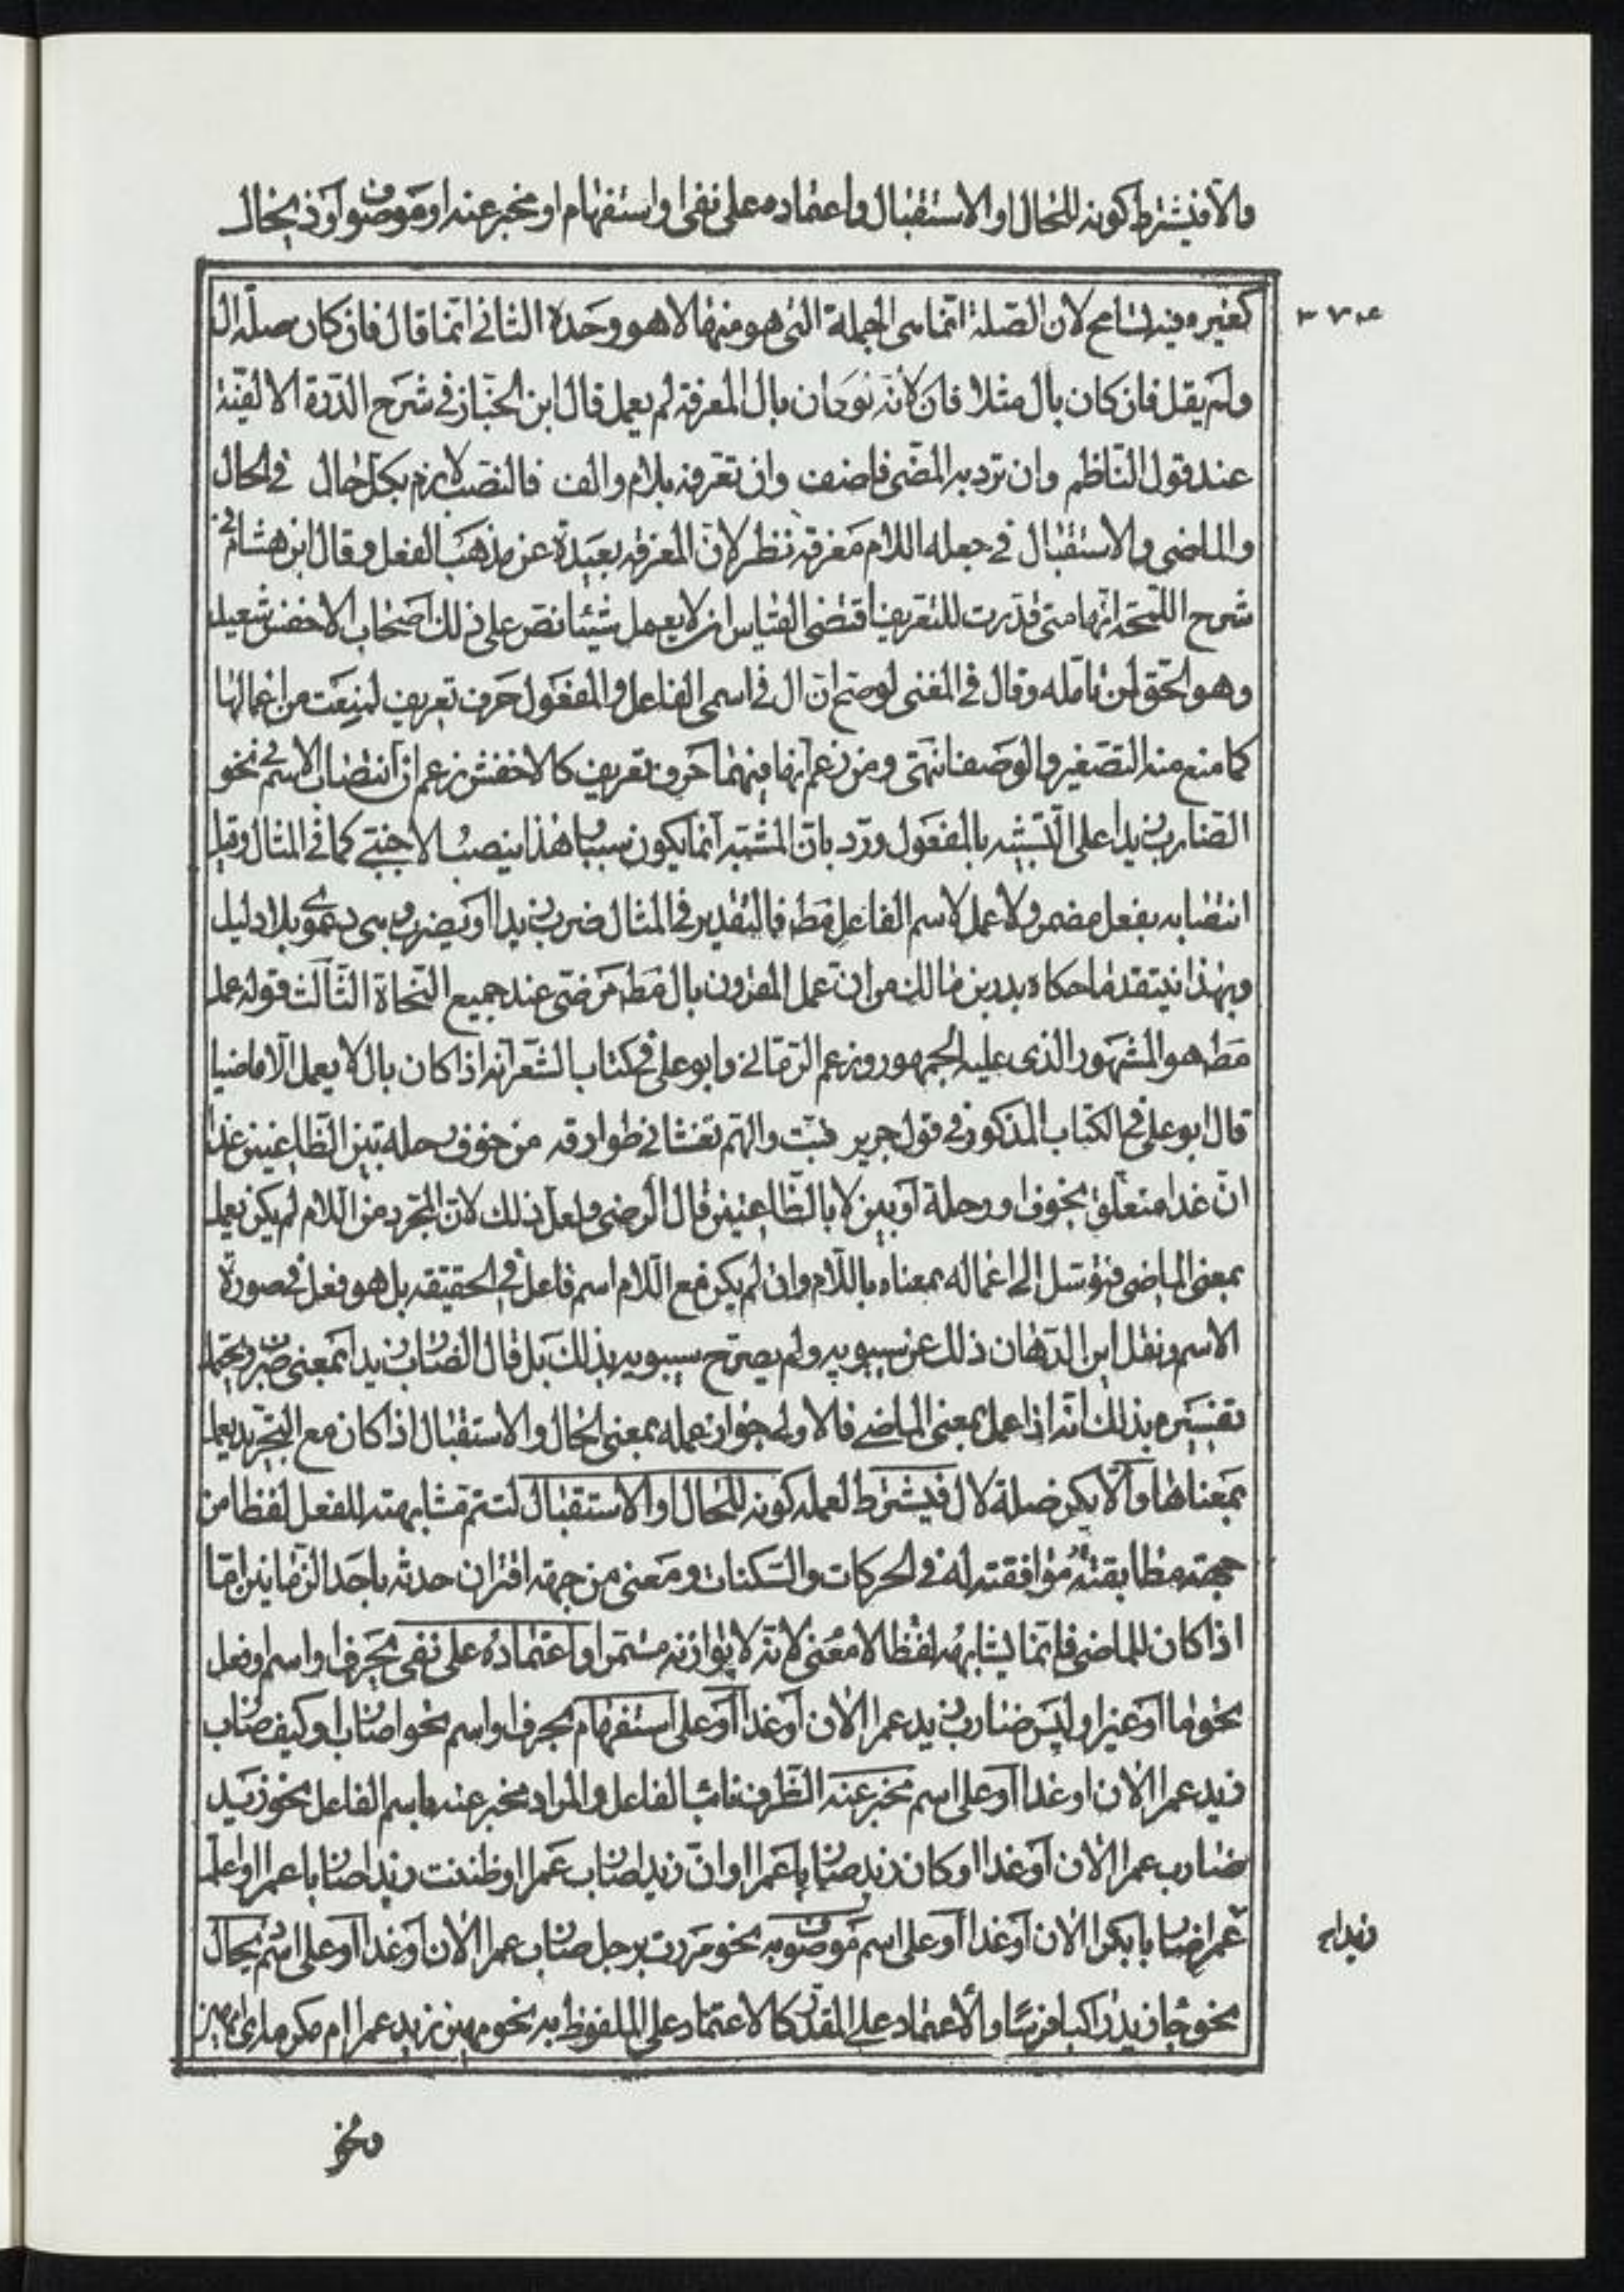 والا فيشترط كونه للحال او الاستقبال واعتماده على نفى او استفهام او مخبر عنه او موصوف او ذى حال
٣٧٤
كغيره وفيه تسامح لان الصلة انما هى الجملة التى هو منها لا هو وحده الثانى انما قال فان كان صلة ال
ولم يقل فان كان بال مثلا فان لأنه نوى ان بال المعرفة لم يعمل قال ابن الخباز فى شرح الدرة الالفية
عند قول الناظم وان ترد به المضى فاضف وان تعرفه بلام والف فالنصب لازم بكل حال فى الحال
والماضى والاستقبال فى جعله اللام معرفة نظر لان المعرفة بعيدة عن مذهب الفعل وقال ابن هشام فى
شرح اللمحة انها متى قدرت للتعريف اقتضى القياس ان لا يعمل شيئا نص على ذلك اصحاب الاخفش سعيد
وهو الحق لمن تامله وقال فى المغنى لو صح ان ال فى اسمى الفاعل والمفعول حرف تعريف لمنعت من اعمالها
كما منع منه التصغير والوصف انتهى ومن زعم انها فيهما حرف تعريف كالاخفش زعم ان انتصاب الاسم فى نحو
الضارب زيدا على التشبيه بالمفعول ورد بان المشبه انما يكون سببيا هذا ينصب الاجنبى كما فى المثال وقيل
انتصابه بفعل مضمر ولا عمل لاسم الفاعل قط فالتقدير فى المثال ضرب زيدا او يضرب وهى دعوى بلا دليل
وبهذا ينتقد ما حكاه بدر بن مالك من ان عمل المقرون بال مط مرضى عند جميع النحاة الثالث قوله عمل
مط هو المشهور الذى عليه الجمهور وزعم الرمانى وابو على فى كتاب الشعر انه اذا كان بال لا يعمل الا ماضيا
قال ابو على فى الكتاب المذكور فى قول جرير فبت والهم تغشانى طوارقه من خوف رحلة بين الظاعنين غدا
ان غدا متعلق بخوف او رحلة او بين لا بالظاعنين قال الرضى ولعل ذلك لان المجرد من اللام لم يكن يعمل
بمعنى الماضى فتوسل الى اعماله بمعناه باللام وان لم يكن مع اللام اسم فاعل فى الحقيقة بل هو فعل فى صورة
الاسم ونقل ابن الدهان ذلك عن سيبويه ولم يصرح سيبويه بذلك بل قال الضارب زيدا بمعنى ضرب ويحتمل
تفسيره بذلك انه اذا عمل بمعنى الماضى فالاولى جواز عمله بمعنى الحال والاستقبال اذ كان مع التجريد يعمل
بمعناهما والا يكن صلة لال فيشترط لعمله كونه للحال او الاستقبال لتتم مشابهته للفعل لفظا من
جهة مطابقته موافقته له فى الحركات والسكنات ومعنى من جهة اقتران حدثه باحد الزمانين اما
اذا كان للماضى فانما يشابهه لفظا لا معنى لانه لا يوازنه مستمرا واعتماده على نفى بحرف او اسم او فعل
نحو ما او غير او ليس ضارب زيد عمرا الان او غدا او على استفهام بحرف او اسم نحو اضارب او كيف ضارب
زيد عمرا الان او غدا او على اسم مخبر عنه الظرف نائب الفاعل والمراد مخبر عنه باسم الفاعل نحو زيد
ضارب عمرا الان او غدا او كان زيد ضاربا عمرا او ان زيدا ضارب عمرا او ظننت زيدا ضاربا عمرا او اعلم
عمرا ضاربا بكرا الان او غدا او على اسم موصوف به نحو مررت برجل ضارب عمرا الان او غدا او على اسم بحال
زيدا
نحو جاء زيد راكبا فرسا والاعتماد على المقدر كالاعتماد على الملفوظ به نحو مهين زيد عمرا ام مكرمه اى امهين
ونحو